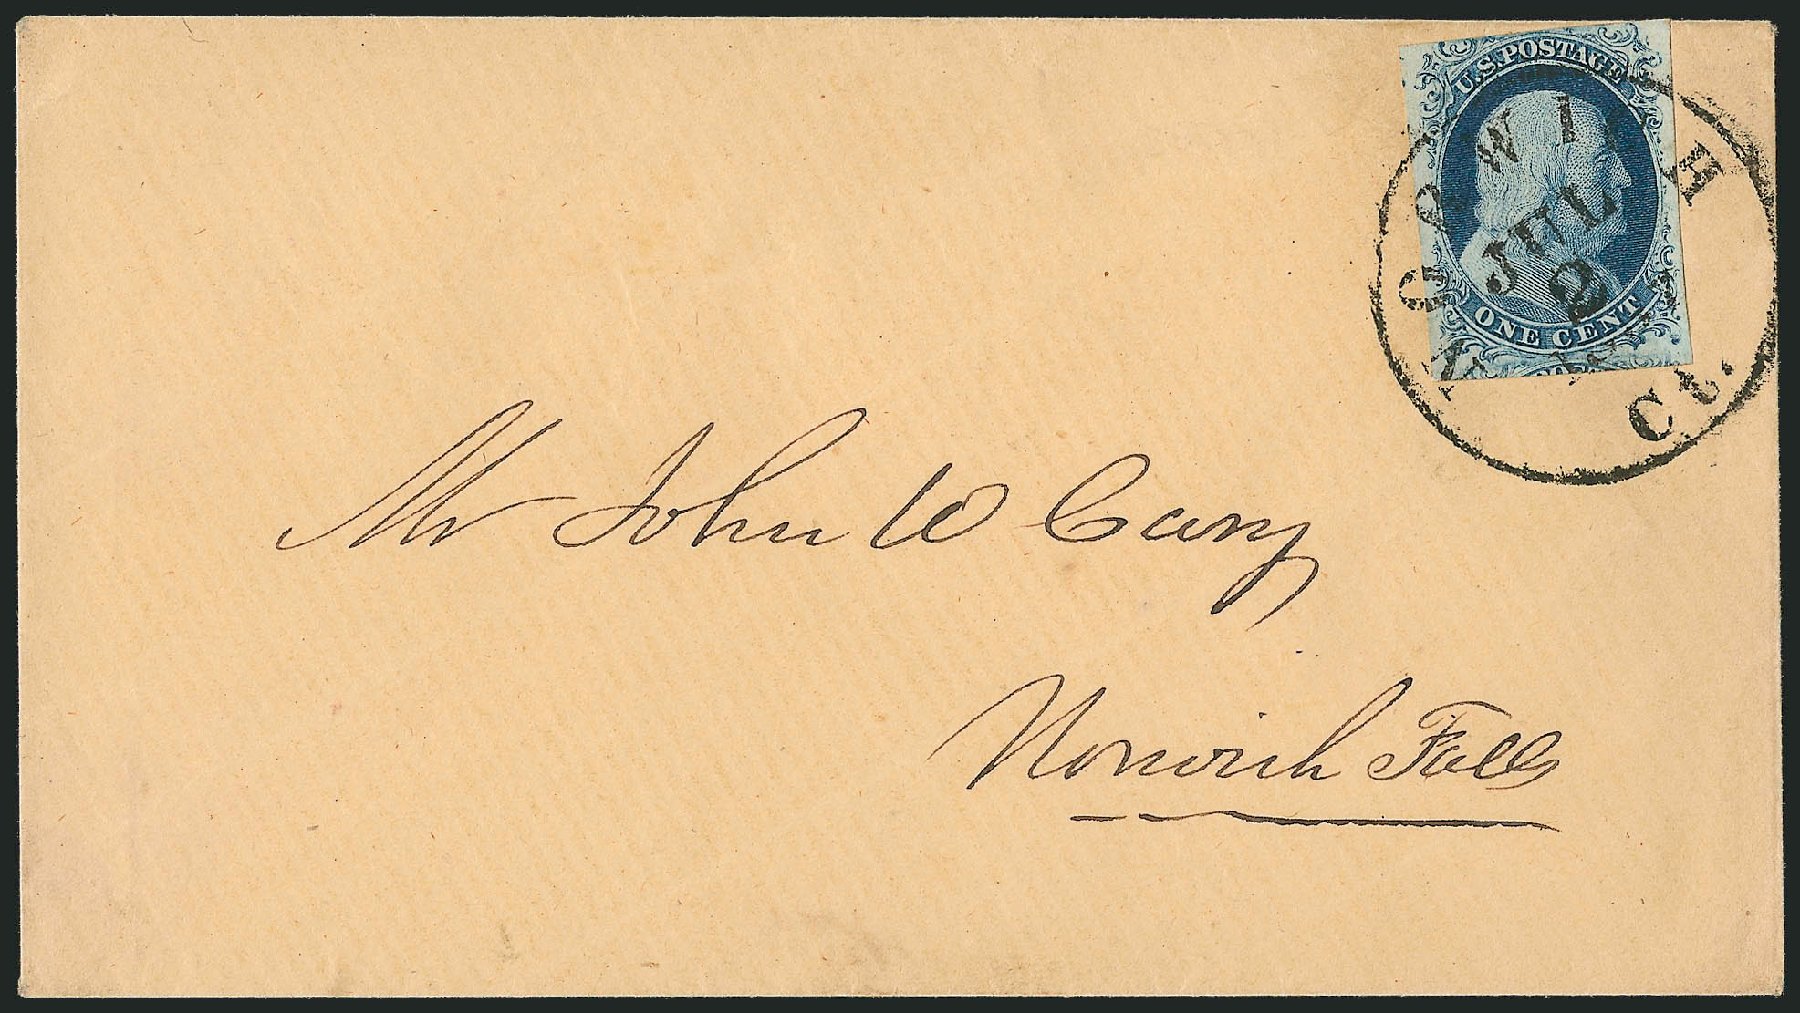 U.S. POSTAGE
ONE CENT
NORWICH
Ct.
JUL
2
Mr John W Cary
Norwich Falls